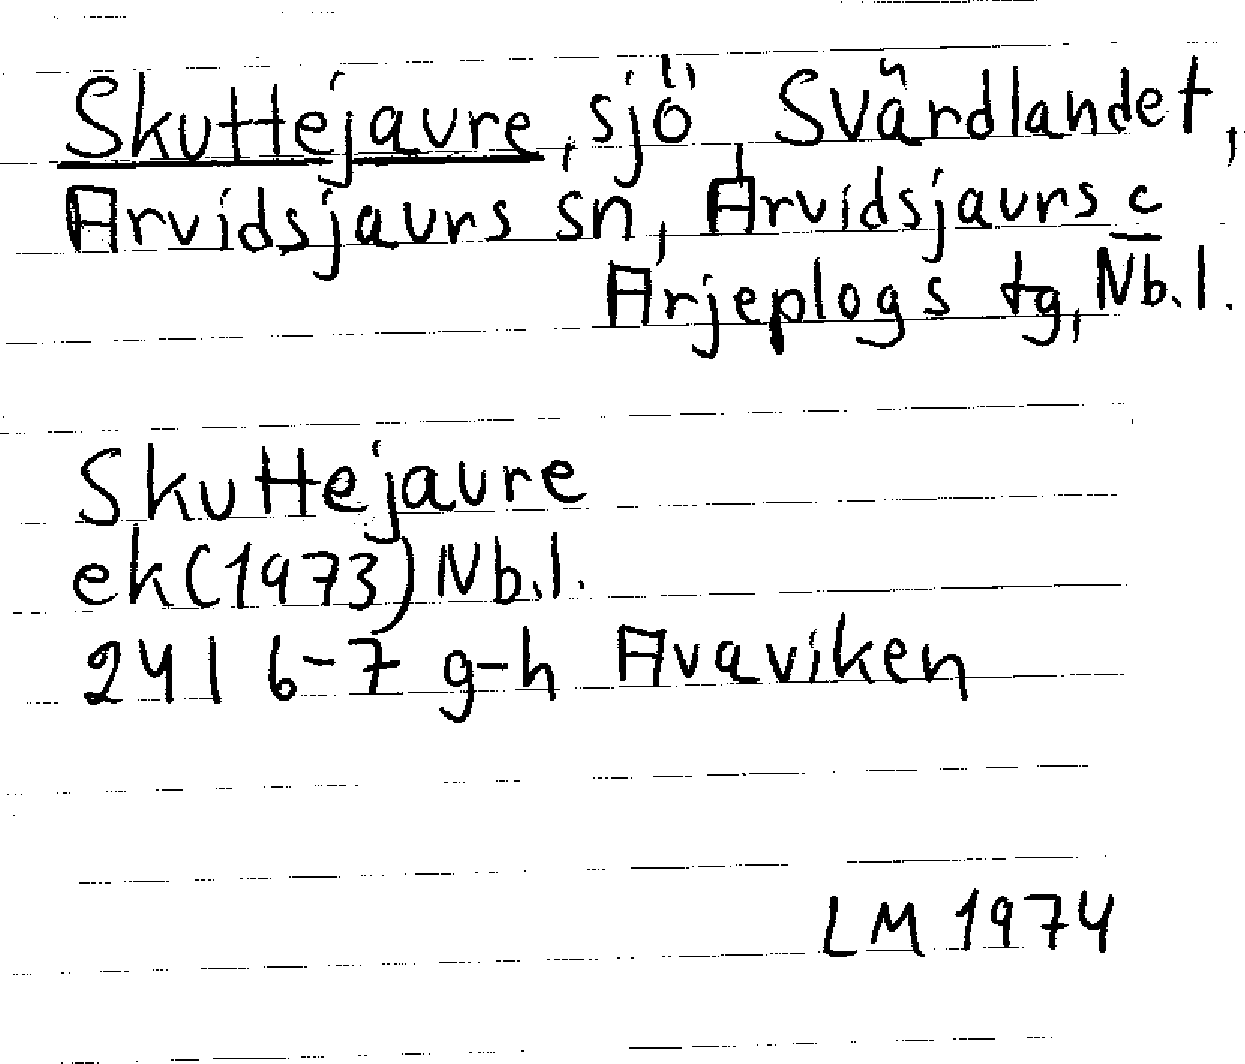 Skuttejaure, sjö, Svärdlandet,
Arvidsjaurs sn, Arvidsjaurs c
Arjeplogs tg, Nb.l.
Skuttejaure
ek(1973) Nb.l.
24I 6-7 g-h Avaviken
LM 1974